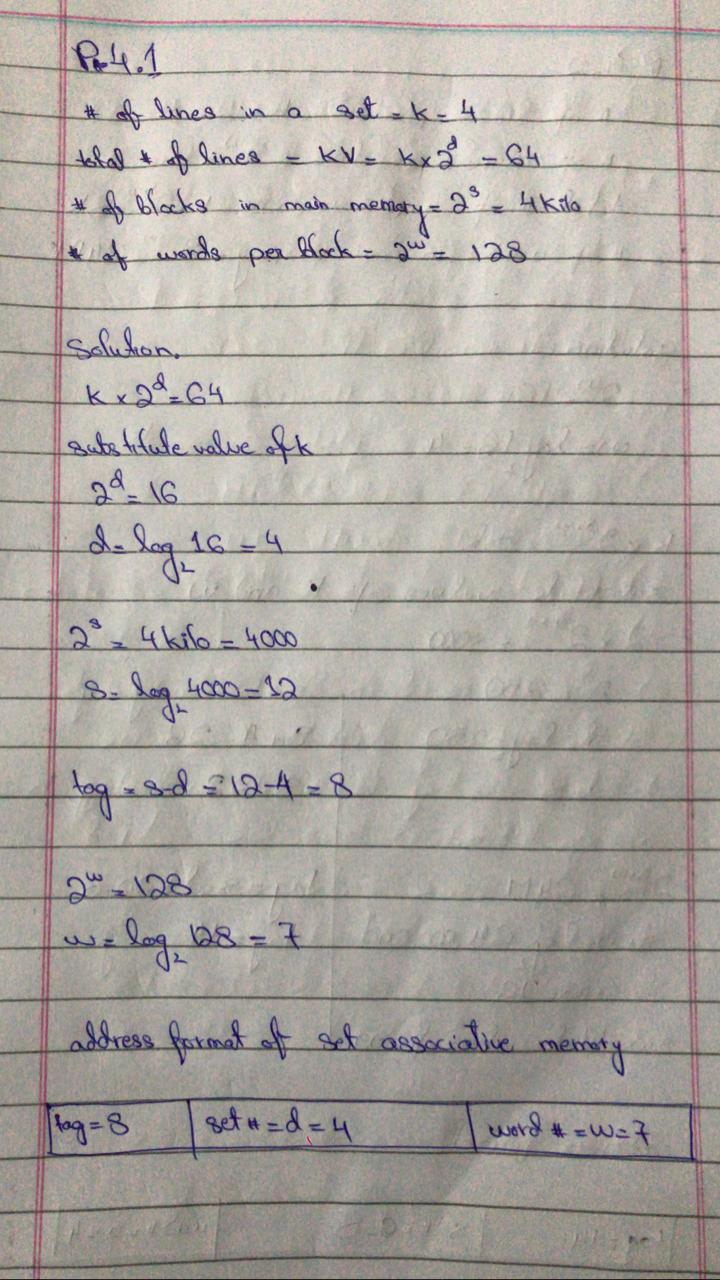 Pr 4.1
# of lines in a set = k = 4
total # of lines = kV = k x 2^d = 64
# of blocks in main memory = 2^s = 4 Kilo
# of words per block = 2^w = 128
Solution.
k x 2^d = 64
substitute value of k
2^d = 16
d = log₂ 16 = 4
2^s = 4 kilo = 4000
s = log₂ 4000 = 12
tag = s-d = 12-4 = 8
2^w = 128
w = log₂ 128 = 7
address format of set associative memory
tag = 8 set # = d = 4 word # = w = 7